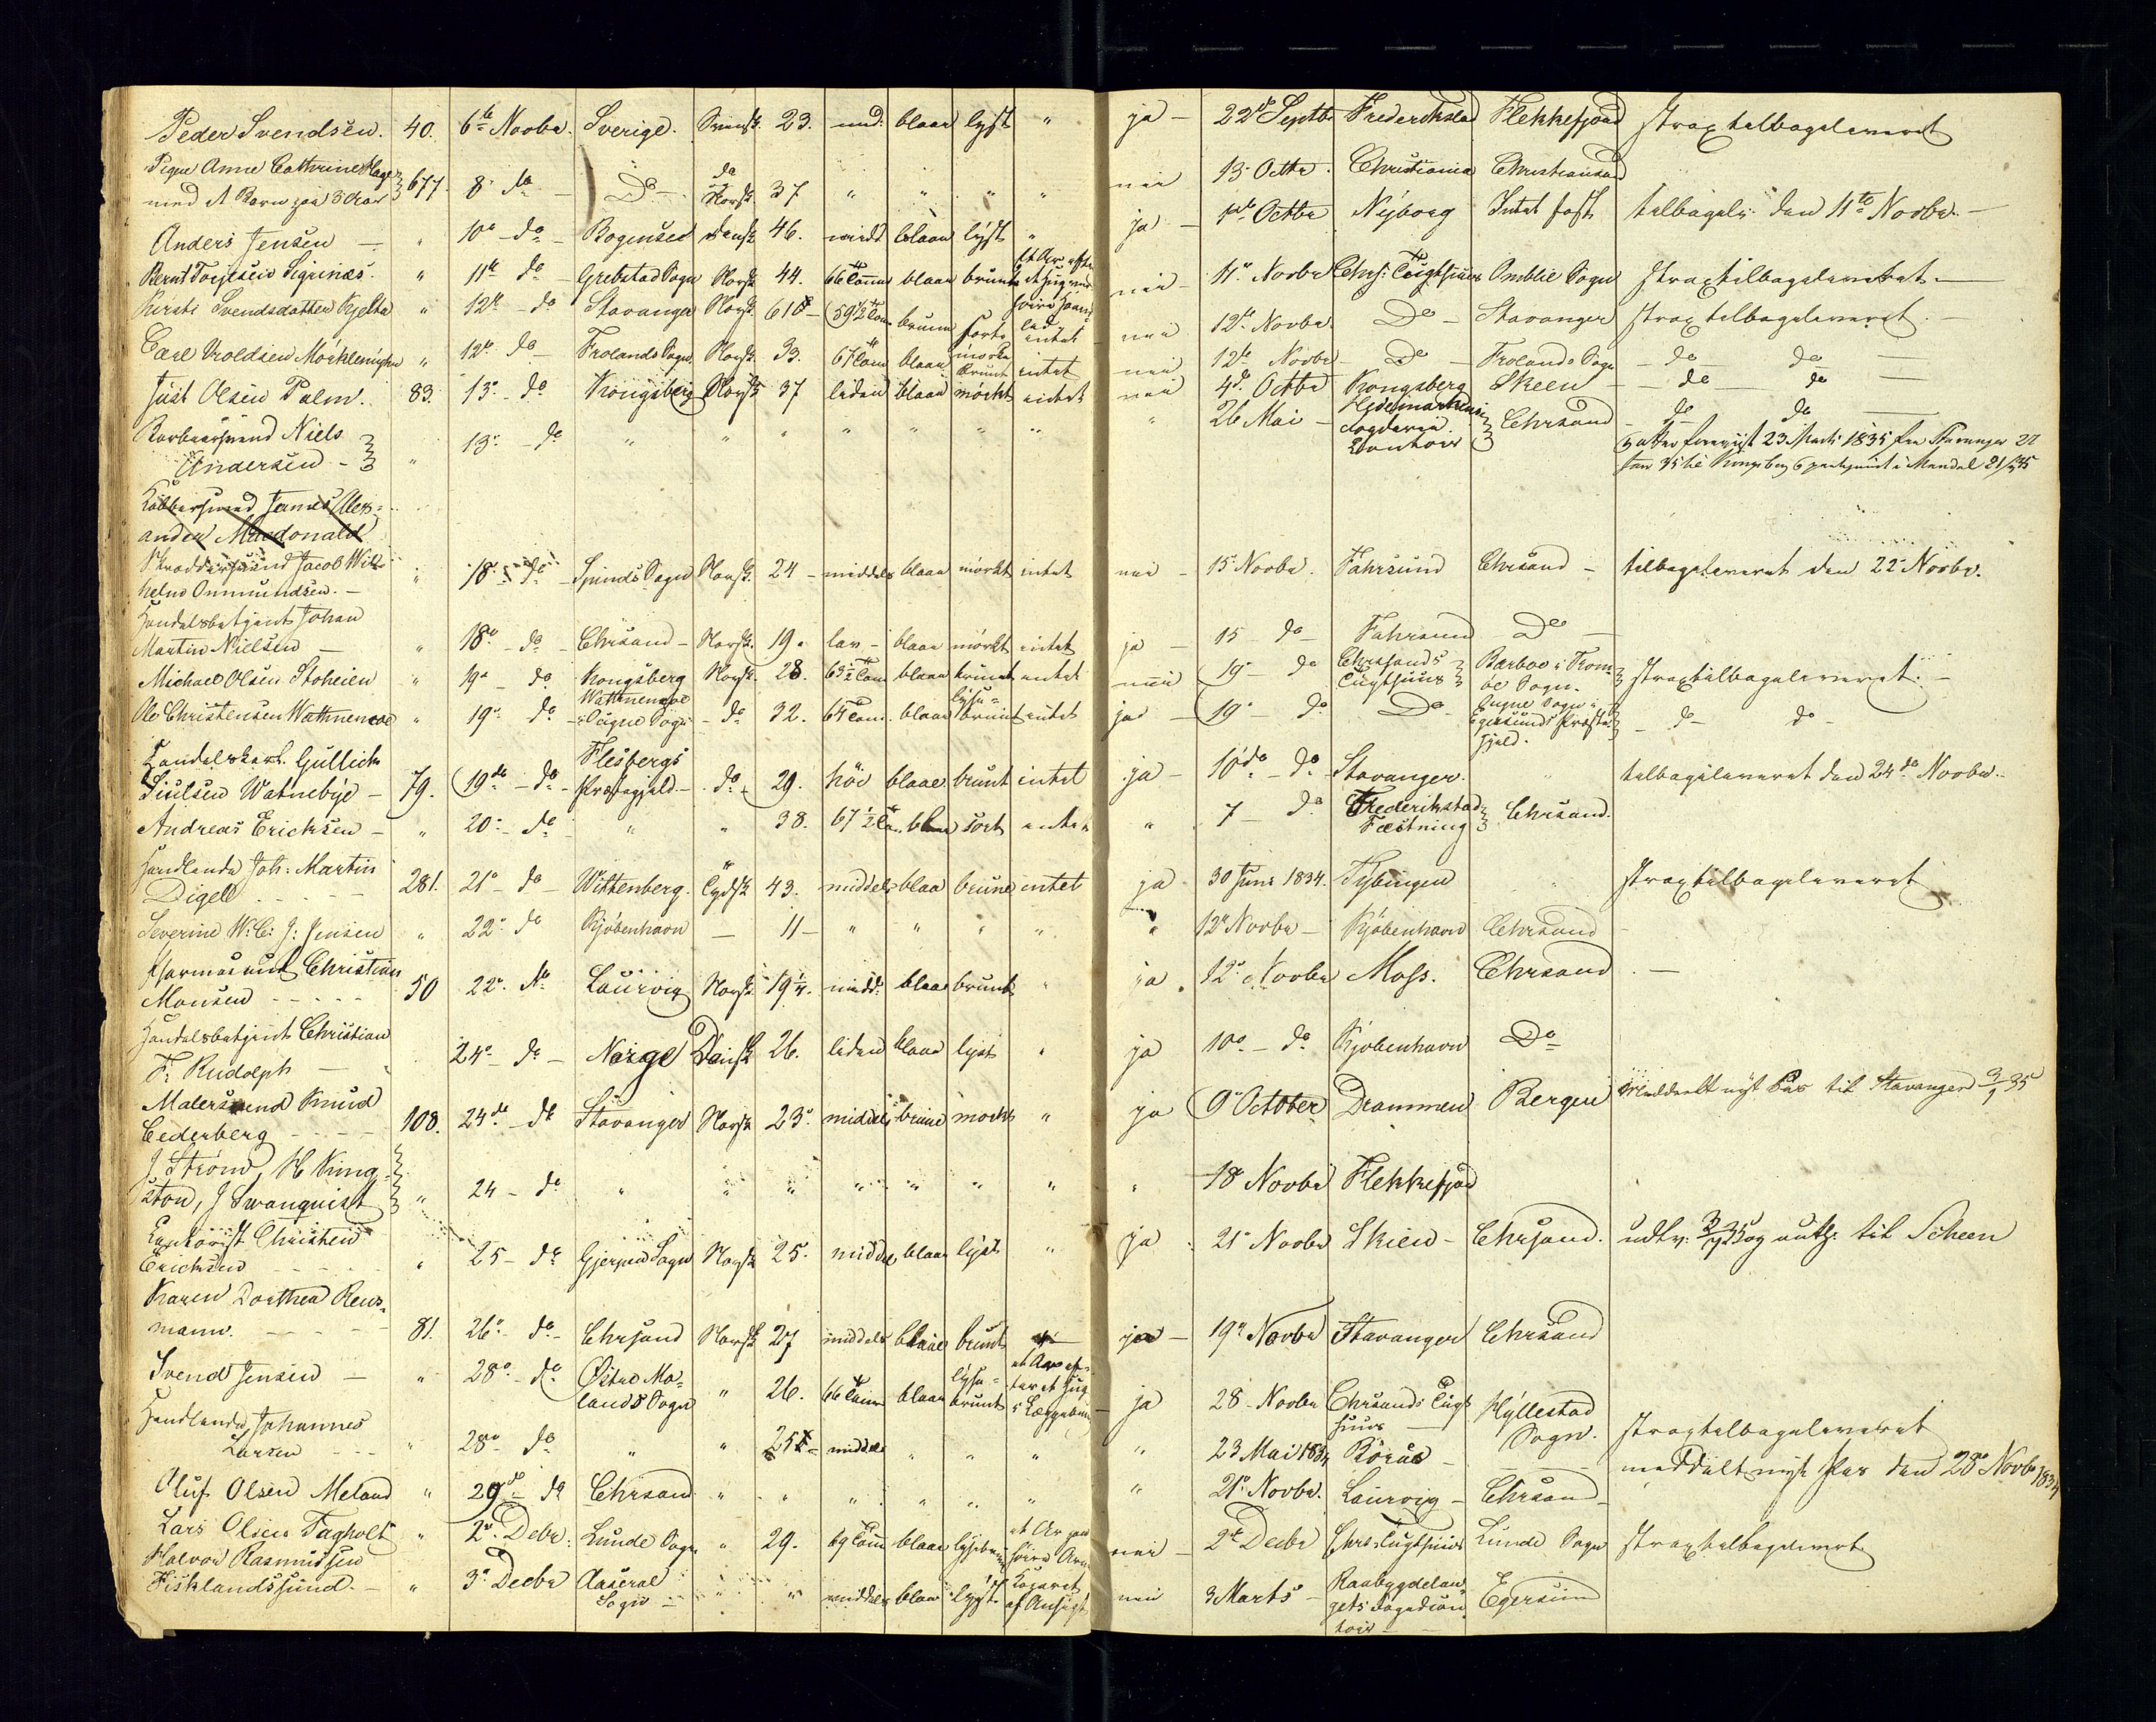 Peder Svendsen. 40. 6te Novbr. Sverige. Svensk. 23. mid. blaae lyst " ja - 22de Septbr Frederikstad Flekkefjord strax tilbageleveret
Pigen Anne Cathrine Hage
med et Barn paa 3 Aar 677. 8de do - Do - do Norsk 37 " " " " nei 13 Octbr. Christiania Christiansand
Anders Jensen - " 10de do - Bogensee dansk 46. midd blaae lyst " ja - 1ste Octbr Nyborg Intet fast tilbagelv: den 11te Novbr. -
Bernt Torjesen Sigrinæs. " 11te do - Grebstad Sogn Norsk 44. 66 Tom blaae brunt nei - 11te Novbr Chrs: Tugthuus Omblie Sogn strax tilbageleveret -
Kirsti Svendsdatter Kjelta " 12te do Stavanger Norsk. 61 59½ Tom bruun sorte intet nei 12te Novbr. Do - Stavanger strax tilbageleveret. -
Carl Aroldsen " 12te do Frolands Sogn Norsk. 33. 67 Tom blaae mørke brunt intet nei 12te Novbr Do - Frolands Sogn - do do -
Just Olsen Palm. 83. 13de do Kongsberg Norsk 37 liden blaae mørkt intet nei 4de Octbr Kongsberg Skeen - do do -
Barbeersvend Niels
Andersen - " 13de do " " " " " " " " 26 Mai - Hedemarkens
Fogderie
Contoir Chrsand - do do
atter foreviist 23 Marts 1835 fra Stavanger
til Kongsberg i Mandal
Kobbersmed James Alex-
ander Macdonald
Skræddersvend Jacob Wil-
helm Ommundsen. - " 18de do Spinds Sogn Norsk. 24 - middels blaae mørkt intet nei - 15 Novbr. Fahrsund Chrsand - tilbageleveret den 22de Novbr.
Handelsbetjent Johan
Martin Nielsen - " 18de - do - Chrsand - Norsk. 19. lav - blaae mørkt intet ja - 15 do Fahrsund Do -
Michael Olsen Stoheien " 19de - do Kongsberg Norsk. 28. 63½ Tom blaae brunt intet nei 19de - do Chrsands
Tugthuus Barboe i Trom-
øe Sogn. strax tilbageleveret. -
Ole Christensen Wathnemoe " 19de do Wathnemoe
i Ougne Sogn - do 32. 64 Tom. blaae lyse-
brunt intet ja - 19de - do Do - Ougne Sogn i
Egersunds Præste-
gjeld. - do - do -
Handelskarl. Gullich
Siulsen Watnebye - 79. 19de - do - Flesbergs
Præstegjeld. - do - 29. høi blaae brunt intet ja - 10de - do - Stavanger. " tilbageleveret den 24de Novbr. -
Andreas Erichsen - " 20de - do - " " 38. 67½ Tom. blaae sort intet " 7 - do Frederikstad
Fæstning Chrsand.
Handlende Joh: Martin
Digel 281. 21de - do - Wittenberg. Tydsk 43. middels blaa brune intet ja 30 Juni 1834. Tybingen " strax tilbageleveret
Severine W: C: J: Jensen " 22de do Kjøbenhavn - 11 - " " " " " 12te Novbr - Kjøbenhavn Chrsand -
Christian
Monsen 50 22de do Laurvig Norsk 19¼. midd. blaae brunt " ja. 12te Novbr Moss. Chrsand. -
Handelsbetjent Christian
F. Rudolph - 24de do - Norge Dansk 26. liden blaae lyst " ja 10de - do Kjøbenhavn Do
Malersvend Knud
Cederberg 108. 24de - do Stavanger Norsk 23. middels brune mørkt " ja 9de October Drammen Bergen Meddeelt nyt Pas til Stavanger
J Strøm, H King-
ston, J Swanquist " 24 - do " " " " " " " " 18 Novbr Flekkefjord
Christen
Erichsen " 25 - do Gjerpen Sogn Norsk 25. middel blaae lyst " ja 21de Novbr Skien - Chrsand. til Scheen
Karen Dorthea Rens-
mann. 81. 26de - do - Chrsand Norsk 27 middels blaae brunt ja - 19de Novbr Stavanger Chrsand
Svend Jensen - " 28de - do Østre Mo-
lands Sogn " 26. 66 Tom blaae lyse-
brunt et Ar ef-
ter et Hug
ja 28 - Novbr Chrsands Tugt
huus Hyllestad
Sogn. strax tilbageleveret
Handlende Johannes
Larsen " 28de do " " 25 - middels " " " " 23 Mai 1834 Røraas - meddelt nyt Pas den 28de Novbr 1834
Oluf Olsen Meland " 29de - do Chrsand " " " " " " " 21de Novbr. Laurvig - Chrsand -
Lars Olsen Tagholt " 2de Debr. Lunde Sogn " 29. 69 Tom blaae lysebrun et Ar paa
høire Arm nei - 2de Decbr Chrs: Tugthuus Lunde Sogn strax tilbageleveret
Halvor Rasmussen
Fisklandssund. - " 3de Decbr Aaseral
Sogn - " " middels blaae lyst Kopparet
af Ansigt nei 3 Marts - Raabygdelau-
gets Fogedcon-
toir - Egersund